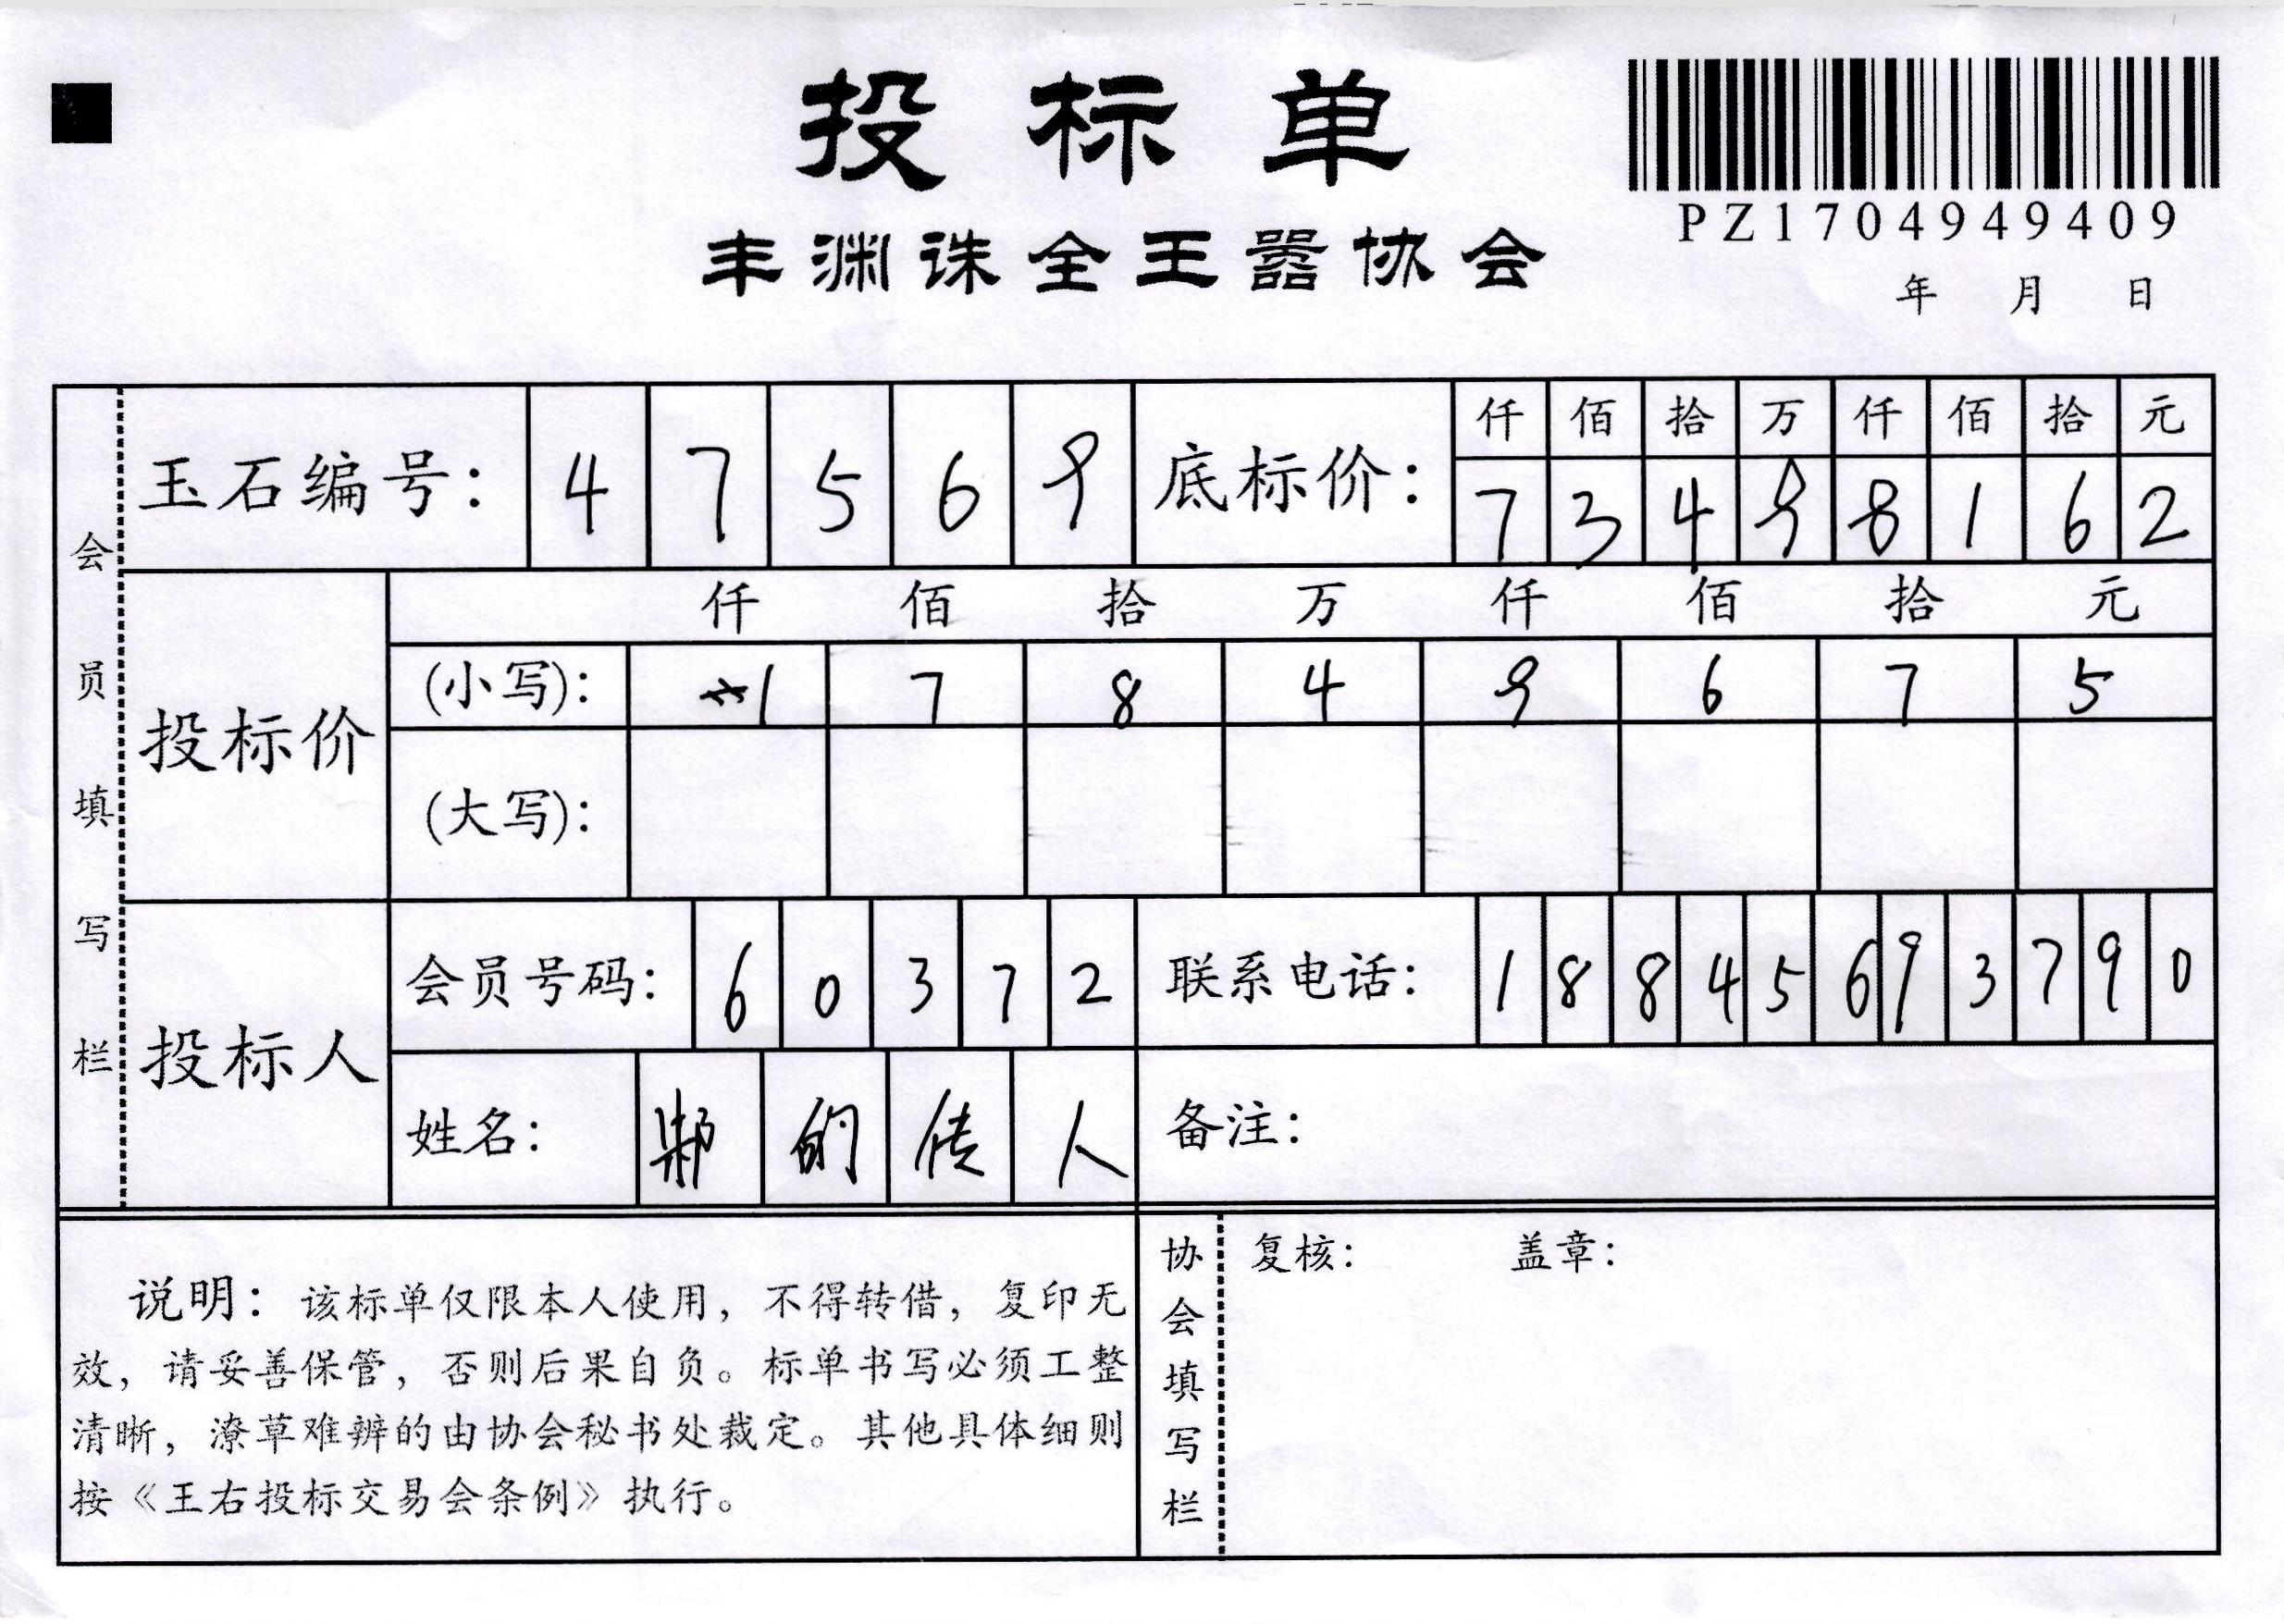 投标单
丰渊诛全王嚣协会
PZ1704949409
年 月 日
会员填写栏
玉石编号： 4 7 5 6 9
底标价： 仟 佰 拾 万 仟 佰 拾 元
7 3 4 9 8 1 6 2
投标价
仟 佰 拾 万 仟 佰 拾 元
(小写)： 1 7 8 4 9 6 7 5
(大写)：
投标人
会员号码： 6 0 3 7 2
联系电话： 1 8 8 4 5 6 9 3 7 9 0
姓名： 的 传 人
备注：
说明：该标单仅限本人使用，不得转借，复印无
效，请妥善保管，否则后果自负。标单书写必须工整
清晰，潦草难辨的由协会秘书处裁定。其他具体细则
按《王右投标交易会条例》执行。
协会填写栏
复核： 盖章：